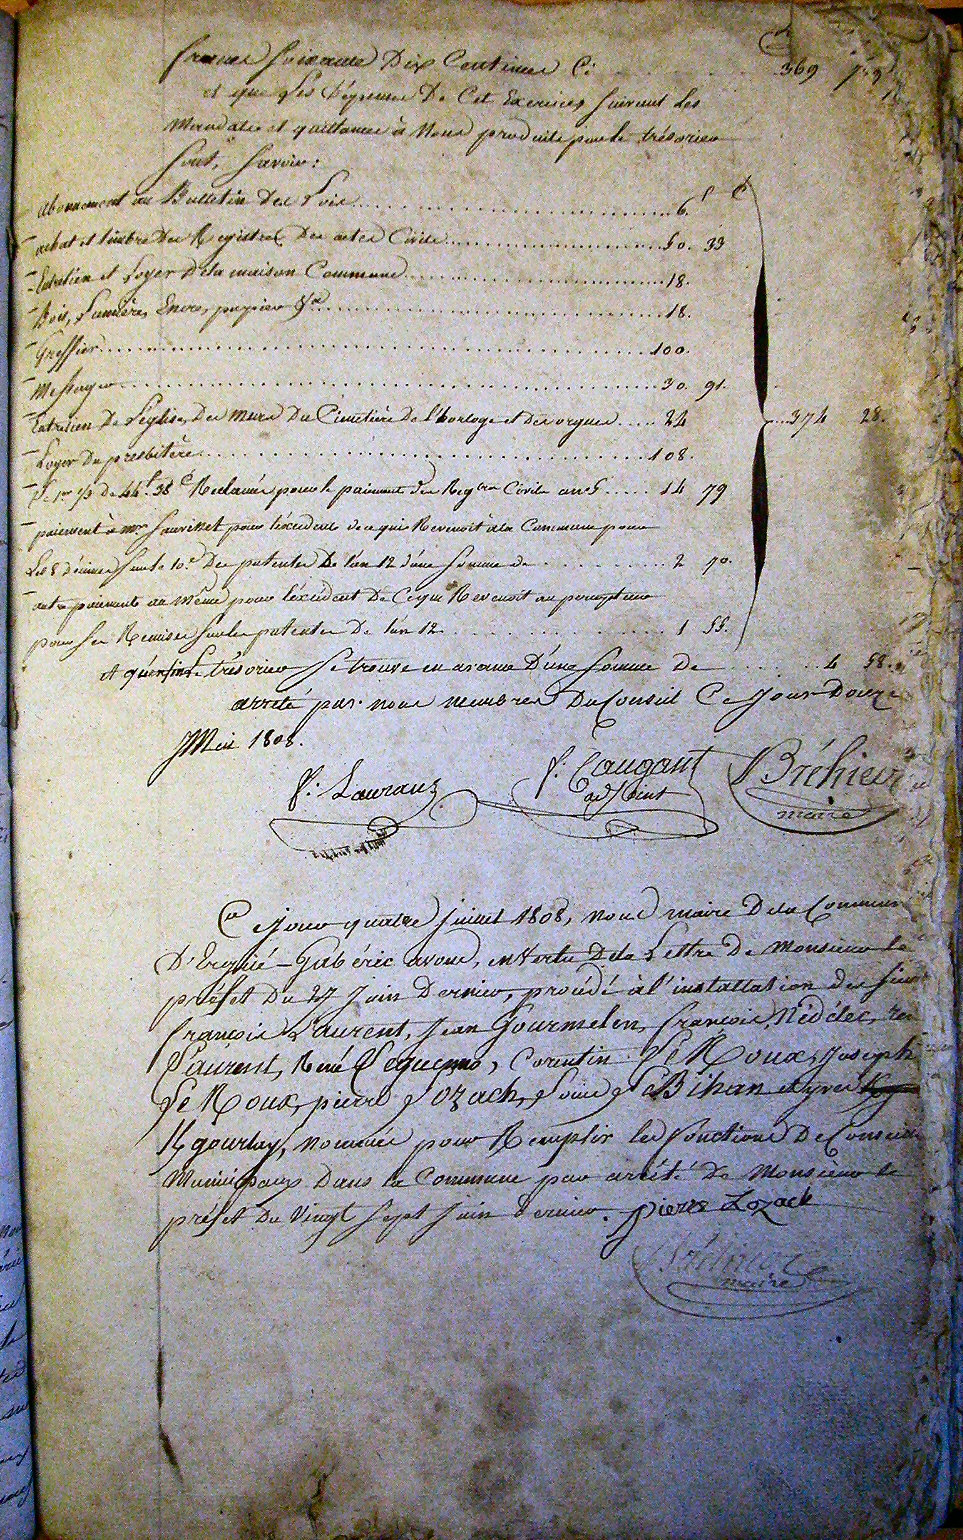 francs soixante Dix Centimes Ci ........ 369 70
et que les Dépenses De Cet Exercice, suivant les
Mandats et quittances à Nous produits par le trésorier
sont, savoir:
f C
abonnement au Bulletin Des Lois ........ 6.
- achat et timbre Des Registres Des actes Civils ........ 50. 33
- Entretien et Loyer Dela maison Commune ........ 18.
- Bois, Lumière, Encre, papier &a ........ 18.
- Greffier ........ 100.
- Messager ........ 30. 91.
- Entretien De l'église, Des murs Du Cimetière De l'horloge et des orgues ..... 24 ...374 28.
- Loyer Du presbitère ........ 108.
- Réclamés pour le paiement Des Regtres Civils an ..... 14 79
- paiement à mr. pour l'excédent de ce qui Revenoit à la Commune pour
Les 8 décimes sur le 10e Des patentes De l'an 12 d'une somme de ........ 2 70.
- autre paiement au Même pour l'excédent De Ce qui Revenoit au percepteur
pour ses Remises sur les patentes De l'an 12 ........ 1 55.
Et qu'enfin Le trésorier se trouve en avance D'une somme de ........ 4 58.
arrêté par nous membres Du Conseil Ce jour Douze
Mai 1808.
f: Laurans
f: Caugant
adjoint
Bréhier
maire
Ce jour quatre juillet 1808, nous maire Dela Commune
D'Ergué-Gabéric avons, en vertu Dela Lettre De Monsieur le
préfet Du 27 Juin Dernier, procédé à l'installation des sieurs
françois Laurent, Jean Gourmelen, françois Nédélec,
Laurent, René Corentin Le Roux, Joseph
Le Roux, pierre Lozach, Louis Le Bihan et yves
Kgourlay, nommés pour Remplir les fonctions De Conseillers
Municipaux Dans la Commune par arrêté de Monsieur le
préfet Du Vingt sept Juin Dernier. pierre Lozach
Bréhier
maire